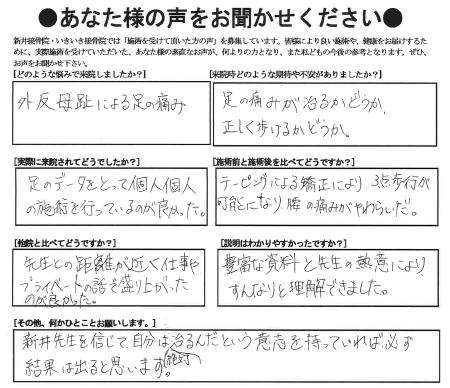 ●あなた様の声をお聞かせください●
新井接骨院・いきいき接骨院では「施術を受けて頂いた方の声」を募集しています。皆様により良い施術や、健康をお届けするた
めに、実際施術を受けていただいた、あなた様の素直なお声が、何よりの力となり、また私どもの今後の参考となります。ぜひ、
お声をお聞かせ下さい。
[どのような悩みで来院しましたか?]
外反母趾による足の痛み
[来院時どのような期待や不安がありましたか?]
足の痛みが治るかどうか、
正しく歩けるかどうか。
[実際に来院されてどうでしたか?]
足のデータをとって個人個人
の施術を行っているのが良かった。
[施術前と施術後を比べてどうですか?]
テーピングによる矯正により、3点歩行が
可能になり、腰の痛みがやわらいだ。
[他院と比べてどうですか?]
先生との距離が近く仕事や
プライベートの話で盛り上がった
のが良かった。
[説明はわかりやすかったですか?]
豊富な資料と先生の熱意により、
すんなりと理解できました。
[その他、何かひとことお願いします。]
新井先生を信じて、自分は治るんだという意志を持っていれば、必ず
結果は出ると思います。(絶対)